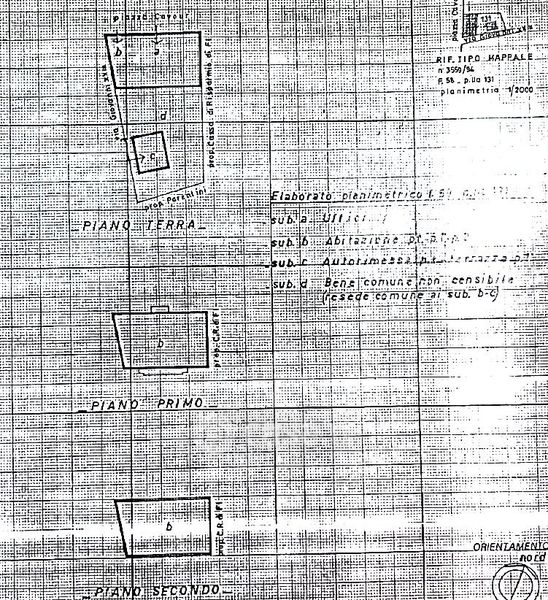 Piazza Cavour
b
a
via Giovanni XXIII
prop. Cassa di Risparmio di FI
d
c
prop. Parentini
PIANO TERRA
131
RIF. TIPO MAPPALE
n 3559/94
F. 58 - p.lla 131
planimetria 1/2000
Elaborato planimetrico f. 58 p.lla 131
sub. a Uffici
sub. b Abitazione p.t.-p.1-p.2
sub. c Autorimessa p.t. terrazza p.1
sub. d Bene comune non censibile
(resede comune ai sub. b-c)
b
prop. C.R. di FI
PIANO PRIMO
b
prop. C.R. di FI
PIANO SECONDO
ORIENTAMENTO
nord